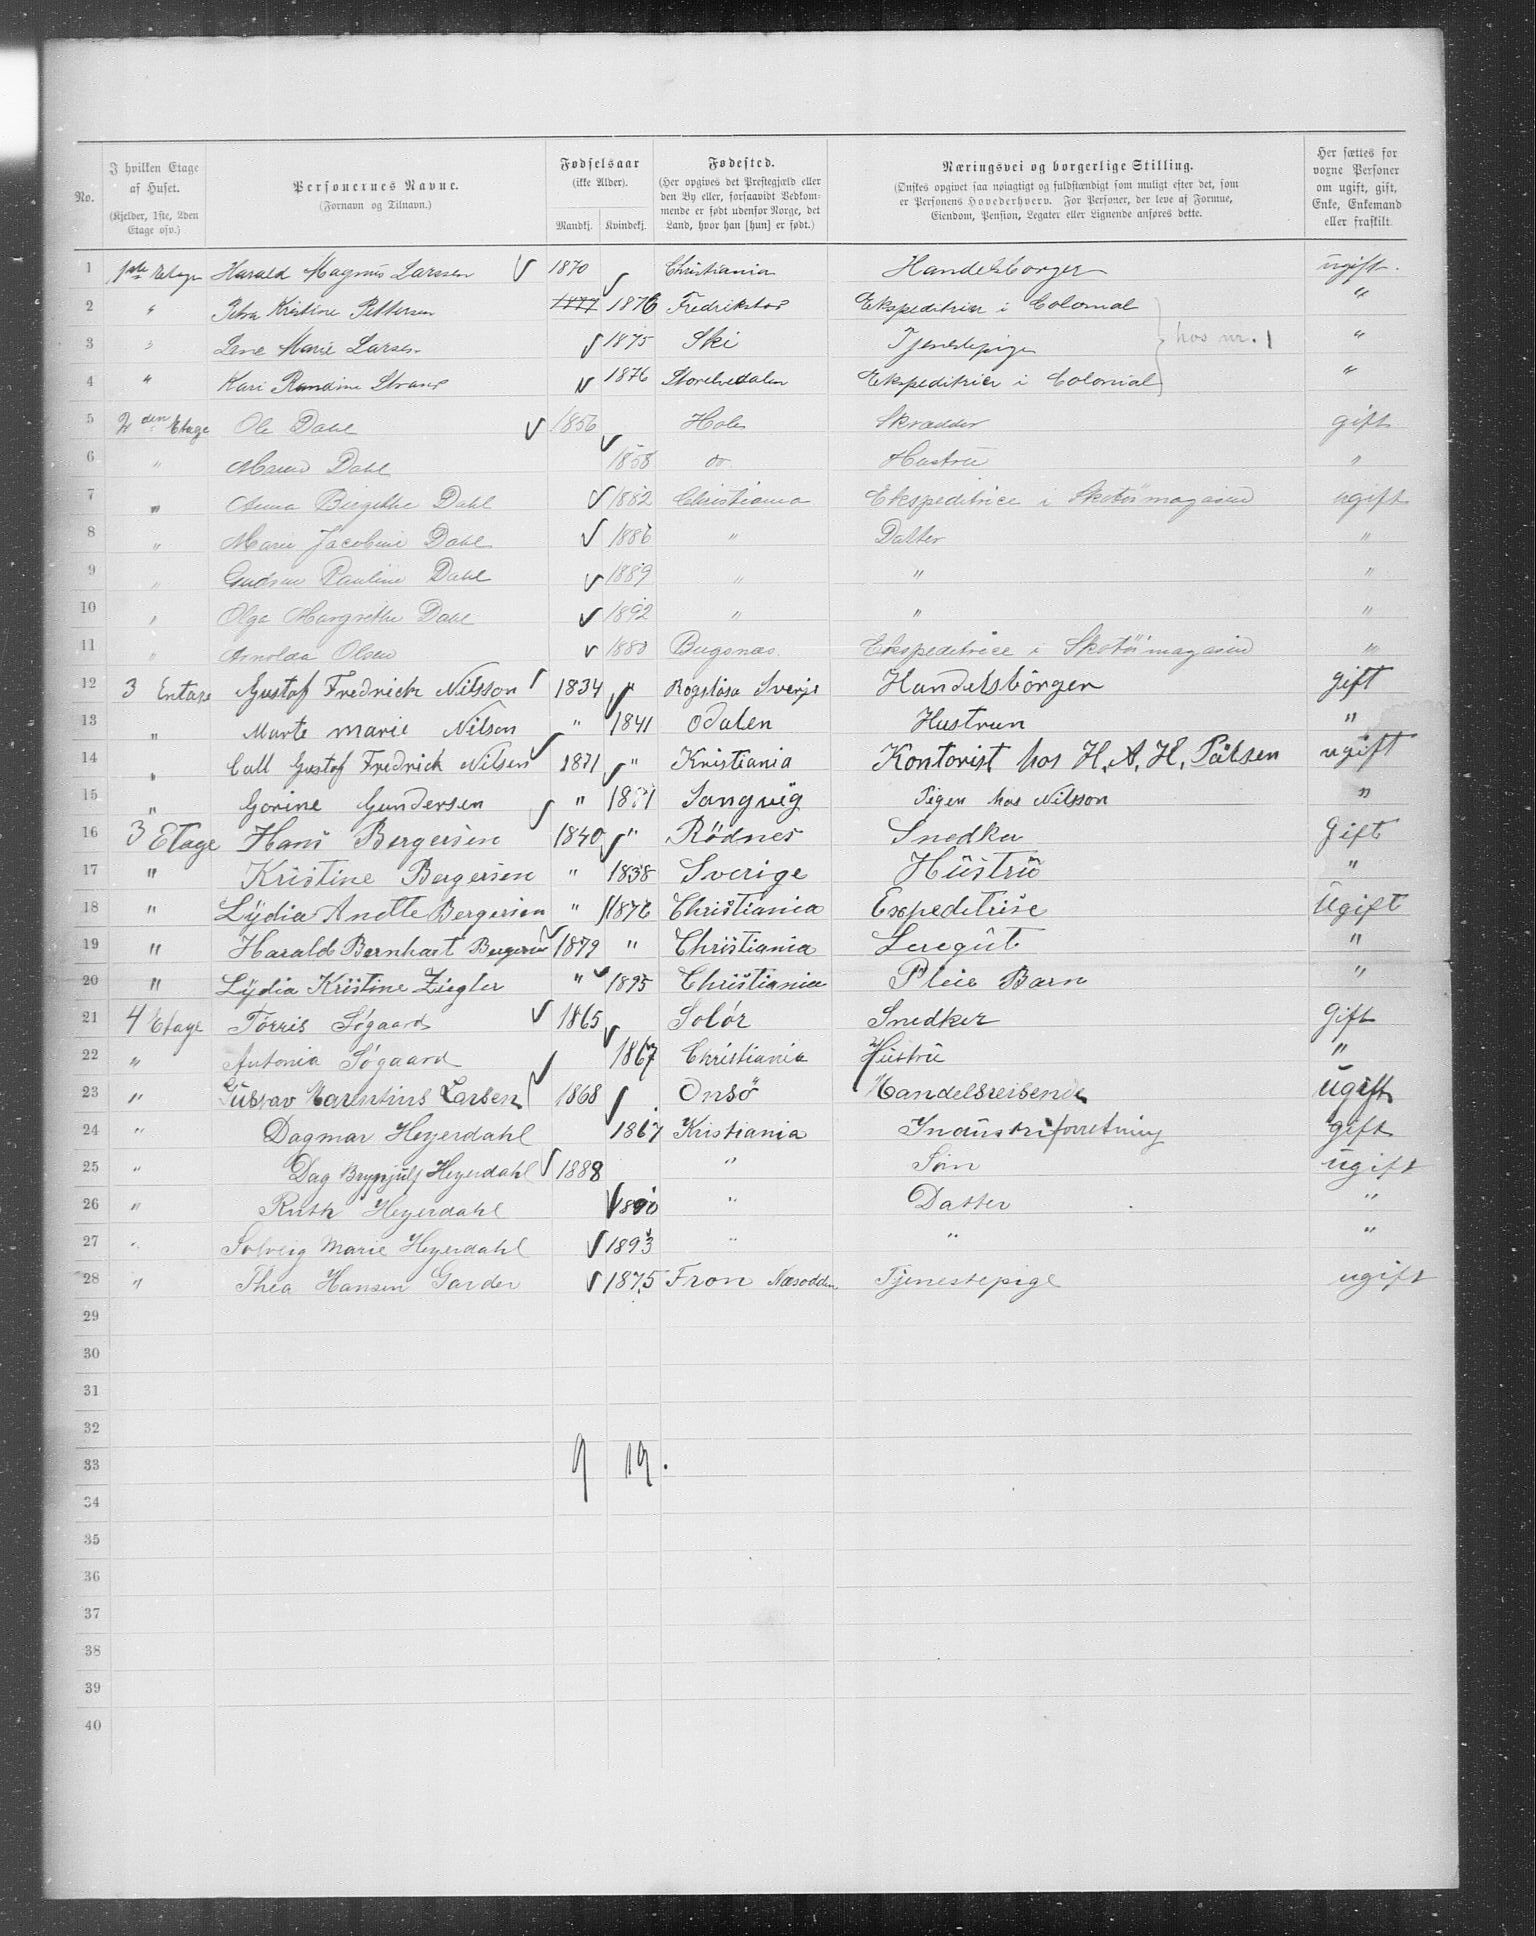 No.
I hvilken Etage af Huset.
(Kjelder, 1ste, 2den Etage osv.)
Personernes Navne.
(Fornavn og Tilnavn.)
Fødselsaar
(ikke Alder).
Mandkj. Kvindekj.
Fødested.
(Her opgives det Prestegjæld eller den By eller, forsaavidt Vedkommende er født udenfor Norge, det Land, hvor han [hun] er født.)
Næringsvei og borgerlige Stilling.
(Ønskes opgivet saa nøiagtigt og fuldstændigt som muligt efter det, som er Personens Hovederhverv. For Personer, der leve af Formue, Eiendom, Pension, Legater eller Lignende anføres dette.
Her sættes for voxne Personer om ugift, gift, Enke, Enkemand eller fraskilt.
1 1ste Etage Harald Magnus Larssen 1870 Christiania Handelsborger ugift.
2 " Petra Kristine Pettersen 1877 1876 Fredrikstad Ekspeditrice i Colonial "
3 " Lene Marie Larsen 1875 Ski Tjenestepige hos nr. 1 "
4 " Kari Randine Strand 1876 Storelvedalen Ekspeditrice i Colonial "
5 2den Etage Ole Dahl 1856 Hole Skrædder gift
6 " Dahl 1858 do Hustru "
7 " Anna Birgethe Dahl 1882 Christiania Ekspeditrice i Skotöimagasin ugift
8 " Marie Jacobine Dahl 1886 " Datter "
9 " Gudrun Pauline Dahl 1889 " " "
10 " Olga Margrethe Dahl 1892 " " "
11 " Arnolda Olsen 1880 Bugsnæs. Ekspeditrice i Skotöimagasin "
12 3 Entase Gustof Fredrick Nilsson 1834 " Rogslösa Sverje Handelsbörger gift
13 " Marte marie Nilson " 1841 Odalen Hustrun "
14 " Call Gustof Fredrick Nilsen 1871 " Kristiania Kontorist hos H. A. H. Pálsen ugift
15 " Gorine Gundersen " 1871 Sangvig Pigen hos Nilsson "
16 3 Etage Hans Bergersen 1840 " Rödnes Snedker Gift
17 " Kristine Bergersen " 1838 Sverige Hüstrü "
18 " Lÿdia Anette Bergersen " 1876 Christiania Expeditrise Ügift
19 " Harald Bernhart Bergersen 1879 " Christiania Leregût "
20 " Lÿdia Kristine Ziegler " 1895 Christiania Pleie Barn "
21 4 Etage Tørris Søgaard 1865 Solør Snedker Gift
22 " Antonia Søgaard 1867 Christiania Hüstrü "
23 " Gustav Marentius Larsen 1868 Onsö Handelsreisende Ugift
24 " Dagmar Heyerdahl 1867 Kristiania Industriforretning gift
25 " Dag Brynjulf Heyerdahl 1888 " Søn ugift
26 " Ruth Heyerdahl 1890 " Datter "
27 " Solveig Marie Heyerdahl 1893 " " "
28 " Thea Hansen Garder 1875 Fron Næsodden Tjenestepige ugift
29
30
31
32
33 9 19.
34
35
36
37
38
39
40